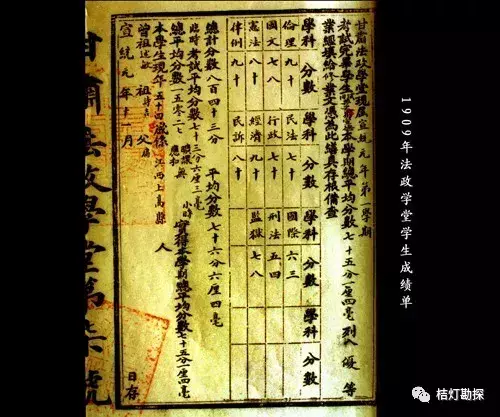 1909年法政学堂学生成绩单
甘肅法政學堂現屆宣統元年第一學期
考試完畢學生本學期總平均分數七十五分一厘四毫列入優等
業經填給修業文憑此繕具存根備查
學科 分數 學科 分數 學科 分數 學科 分數
倫理 九十 民法 七十 國際 六三
國文 七八 行政 七十 刑法 五四
憲法 八十 經濟 九十 監獄 七八
律例 九十 民訴 八十
總計分數八百四十三分 平均分數七十六分六厘四毫
此時考試平均分數七十三分六厘三毫
總平均分數一五零二七 實得本學期總平均分數七十五分一厘四毫
本學生現年五十四歲係江西上高縣人
曾祖述敏 祖 父
宣統元年十一月 日存
甘肅法政學堂第六號
桔灯勘探